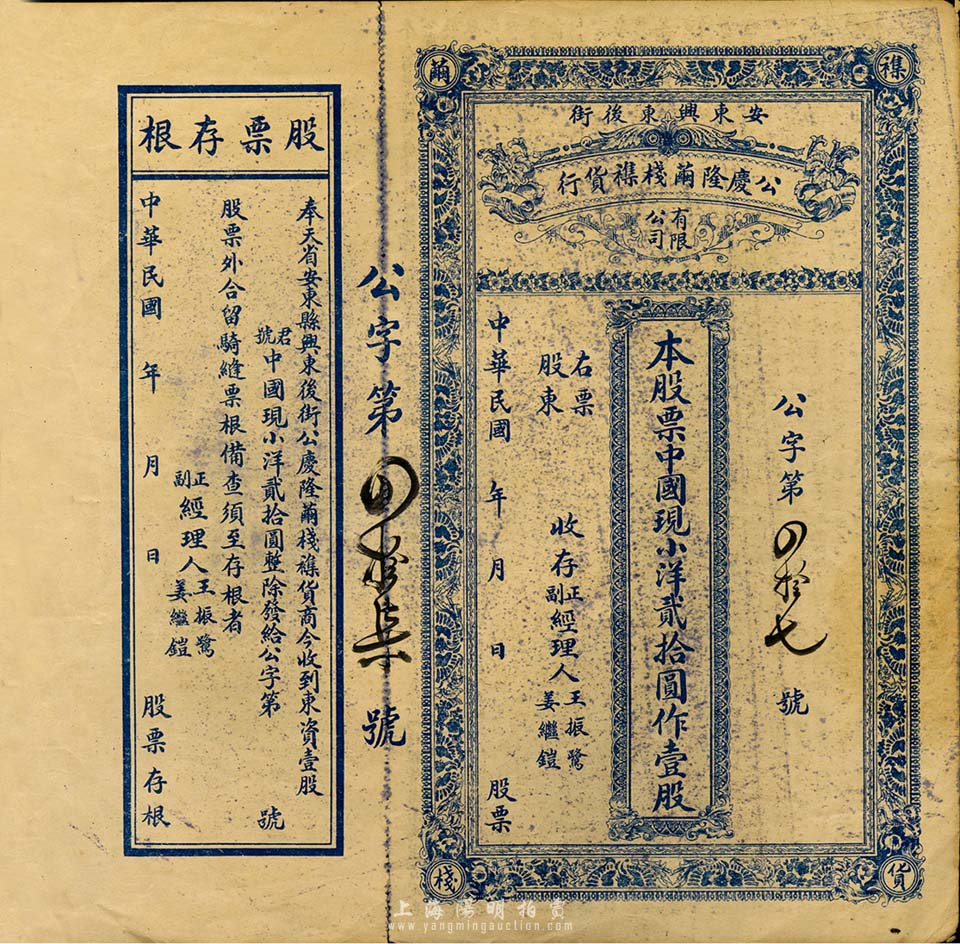 安東興東後街
公慶隆繭棧襍貨行
有限公司
襍
貨
繭
棧
公字第四拾七號
本股票中國現小洋貳拾圓作壹股
右票
股東
收存
正副經理人
王振鷺
姜繼鎧
中華民國 年 月 日 股票
公字第四拾柒號
股票存根
奉天省安東縣興東後街公慶隆繭棧襍貨商今收到東資壹股
君號中國現小洋貳拾圓整除發給公字第 號
股票外合留騎縫票根備查須至存根者
正副經理人
王振鷺
姜繼鎧
中華民國 年 月 日 股票存根
上海陽明拍賣
www.yangmingauction.com